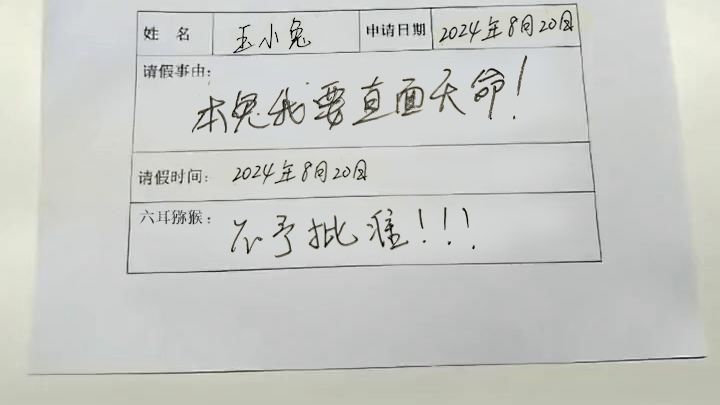 姓 名 王小兔 申请日期 2024年8月20日
请假事由:
本兔我要直面天命!
请假时间: 2024年8月20日
六耳猕猴: 不予批准!!!